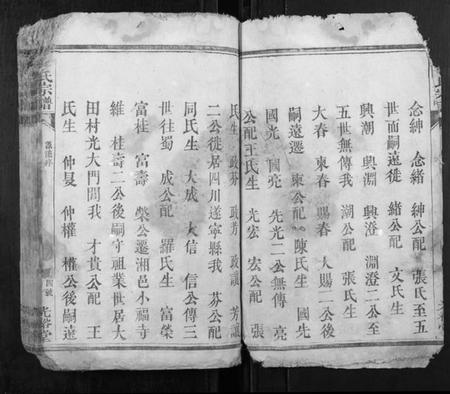 念紳 念緒 紳公配 張氏至五
世而嗣遠徙 緒公配 文氏生
興潮 興淵 興澄 淵澄二公至
五世無傳我 潮公配 張氏生
大春 東春 賜春 大賜二公後
嗣遠遷 東公配 陳氏生 國先
國光 國亮 先光二公無傳 亮
公配王氏生 光宏 宏公配 張
氏生 政芬 政芳 政讓 芳讓
二公徙居四川遂寧縣我 芬公配
同氏生 大成 大信 信公傳三
世往蜀 成公配 羅氏生 富榮
富桂 富壽 榮公遷湘邑小福寺
維 桂壽二公後嗣守祖業世居大
田村光大門閭我 才貴公配 王
氏生 仲旻 仲權 權公後嗣遠
氏宗譜
四號